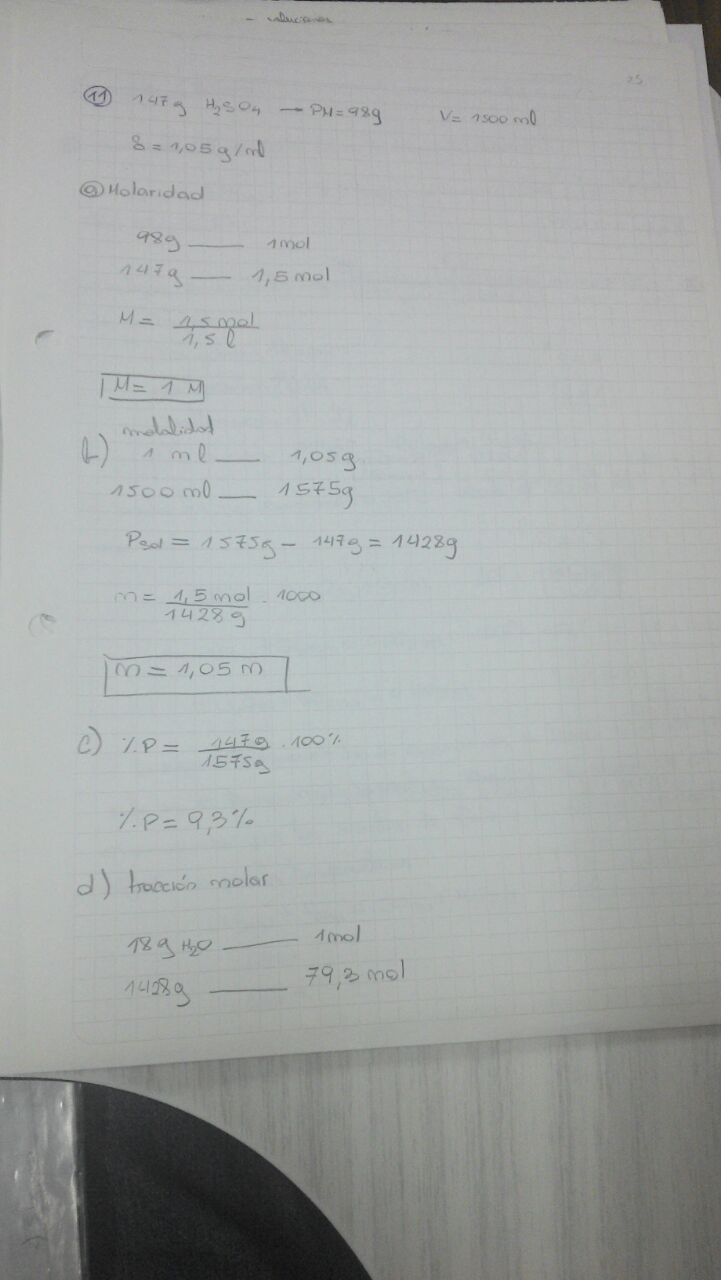 - soluciones
25
11 147g H₂SO₄ → PM=98g V= 1500 ml
δ = 1,05 g/ml
a) Molaridad
98g —— 1mol
147g —— 1,5 mol
M = 1,5 mol / 1,5 l
M = 1 M
b) molalidad
1 ml —— 1,05g
1500 ml —— 1575g
Psol = 1575g - 147g = 1428g
m = 1,5 mol / 1428 g . 1000
m = 1,05 m
c) %P = 147g / 1575g . 100%
%P = 9,3%
d) fracción molar
18g H₂O —— 1mol
1428g —— 79,3 mol